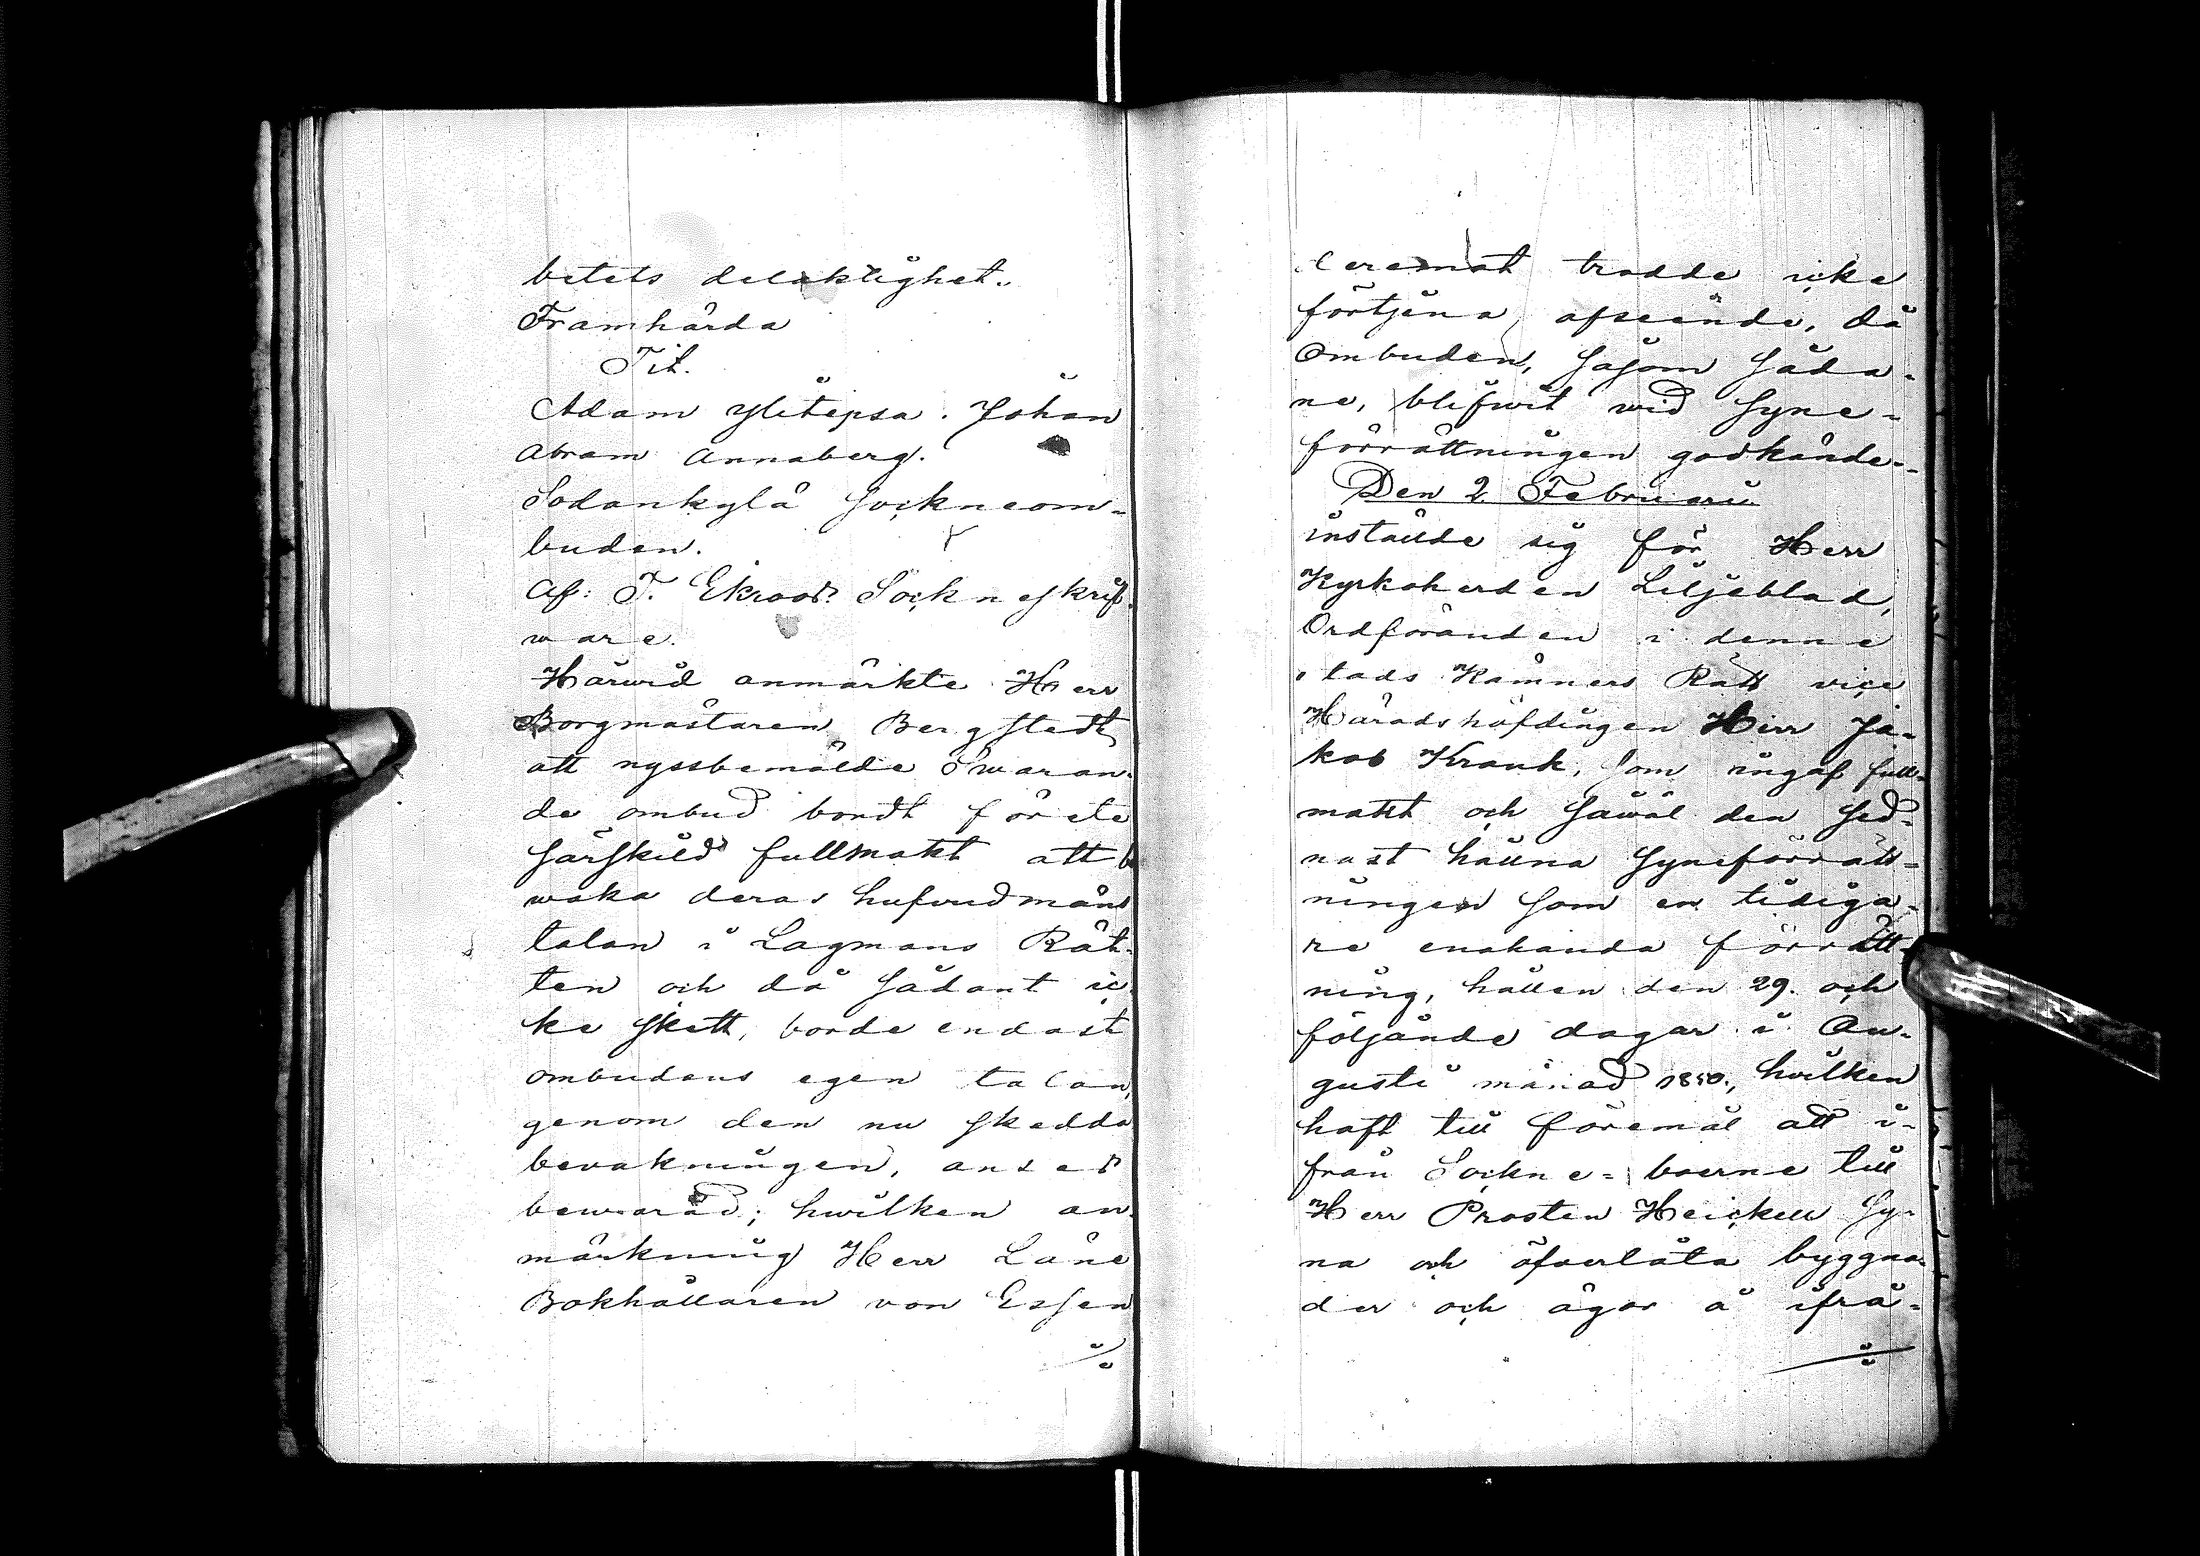 betets delaktighet.
Framhärda
Tit.
Adam Ylitepsa. Johan
Abram Annaberg.
Sodankylä Sockneom-
buden.
Af: T. Ekroos. Sockneskrif-
ware.
Härwid anmärkte Herr
Borgmästaren Bergstedt
att nyssbemälde swaran-
de ombud bordt förete
särskild fullmakt att be
waka deras hufvudmäns
talan i Lagmans Rät-
ten och då sådant ic-
ke skett, borde endast
ombudens egen talan,
genom den nu skedda
bevakningen, anses
bewarad; hwilken an-
märkning Herr Läne
Bokhållaren von Essen
./.
deremot trodde icke
förtjena afseende, då
Ombuden, såsom såda-
ne, blifwit wid Syne-
förrättningen godkände.
Den 2 Februarii
instälde sig för Herr
Kyrkoherden Liljeblad,
Ordföranden i denne
stads Kämners Rätt vice
Häradshöfdingen Herr Ja-
kob Krank, som ingaf full-
makt och såwäl den sed-
nast hållna Syneförrätt-
ningen som en tidiga-
re enahanda förrätt-
ning, hållen den 29. och
följande dagar i Au-
gusti månad 1850., hvilken
haft till föremål att i-
från Sockne-boerne till
Herr Prosten Heickell Sy-
na och öfverlåta byggna-
der och ägor å ifrå-
./.